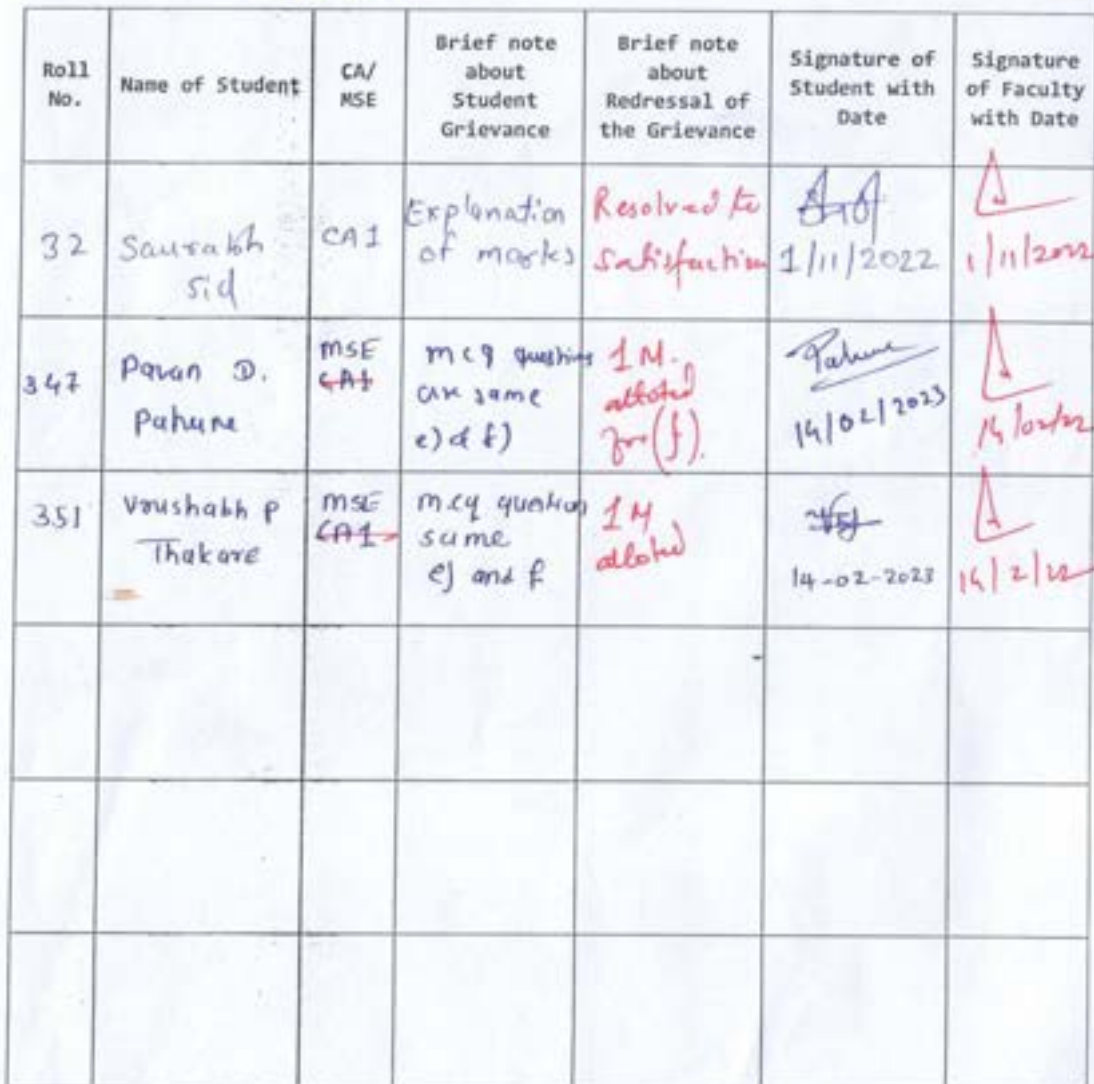 Roll No.
Name of Student
CA/ MSE
Brief note about Student Grievance
Brief note about Redressal of the Grievance
Signature of Student with Date
Signature of Faculty with Date
32
Saurabh
Sid
CA1
Explanation
of marks
Resolved to
Satisfaction
1/11/2022
1/11/2022
347
Pavan D.
Pahune
MSE
CA1
mcq questions
are same
e) & f)
1 M.
alloted
for (f).
Pahune
14/02/2023
14/02/22
351
Vrushabh P
Thakare
MSE
CA1
mcq question
same
e) and f
1 M
alloted
14-02-2023
14/2/22